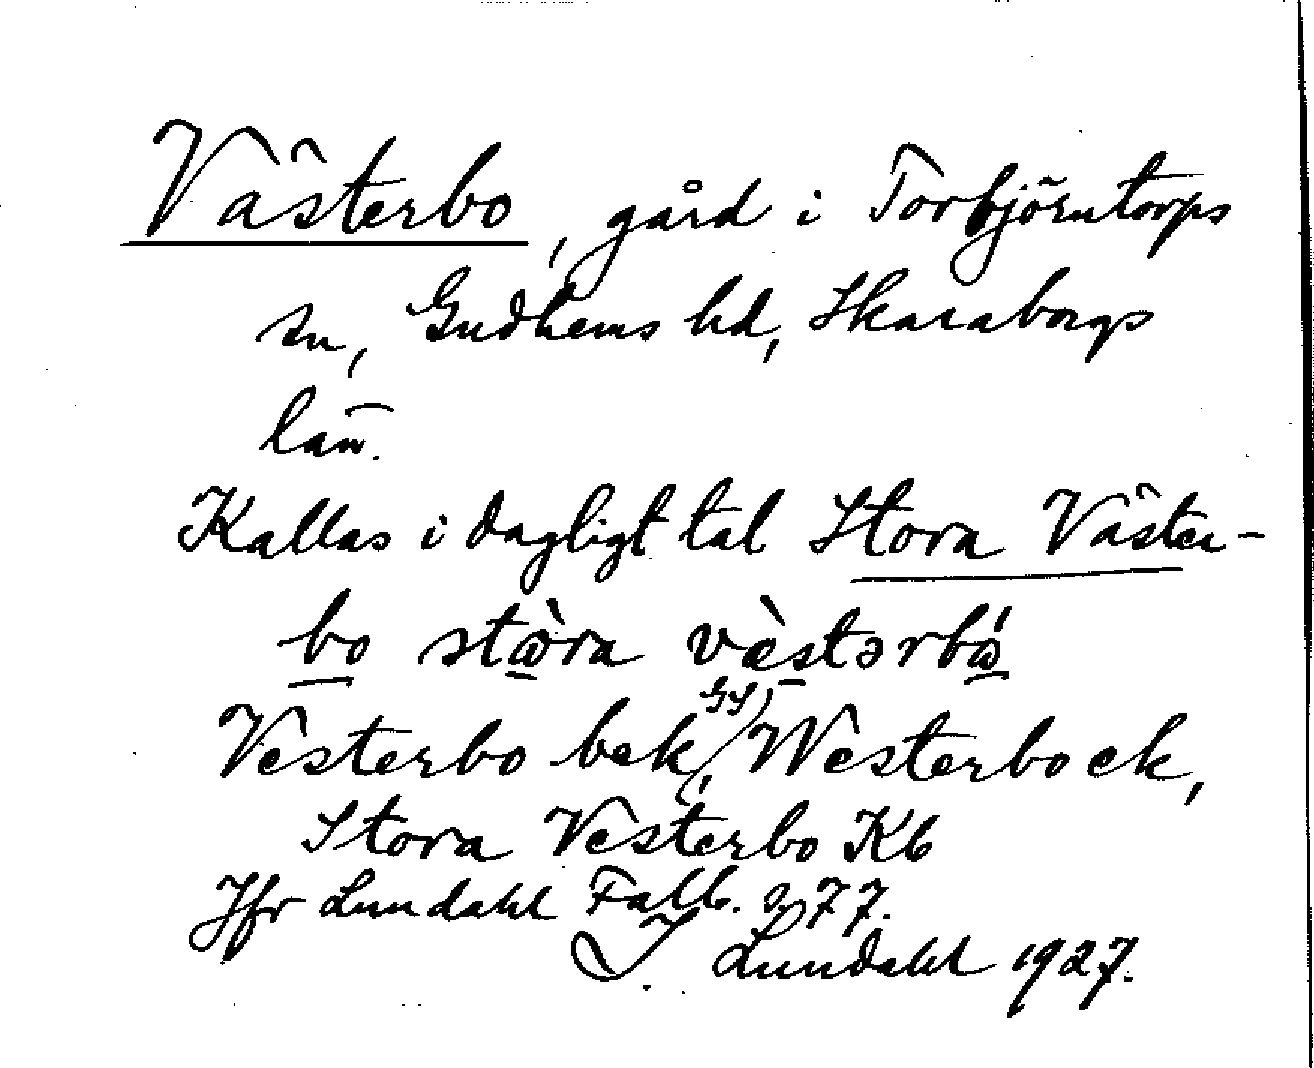 Västerbo, gård i Torbjörntorps
sn, Gudhems hd, Skaraborgs
län.
Kallas i dagligt tal Stora Väster-
bo stὼra væ̀stərbώ
Vesterbo bek, Westerbo ek,
Stora Vesterbo Kb
Jfr Lundahl Falb. s. 77.
I. Lundahl 1927.